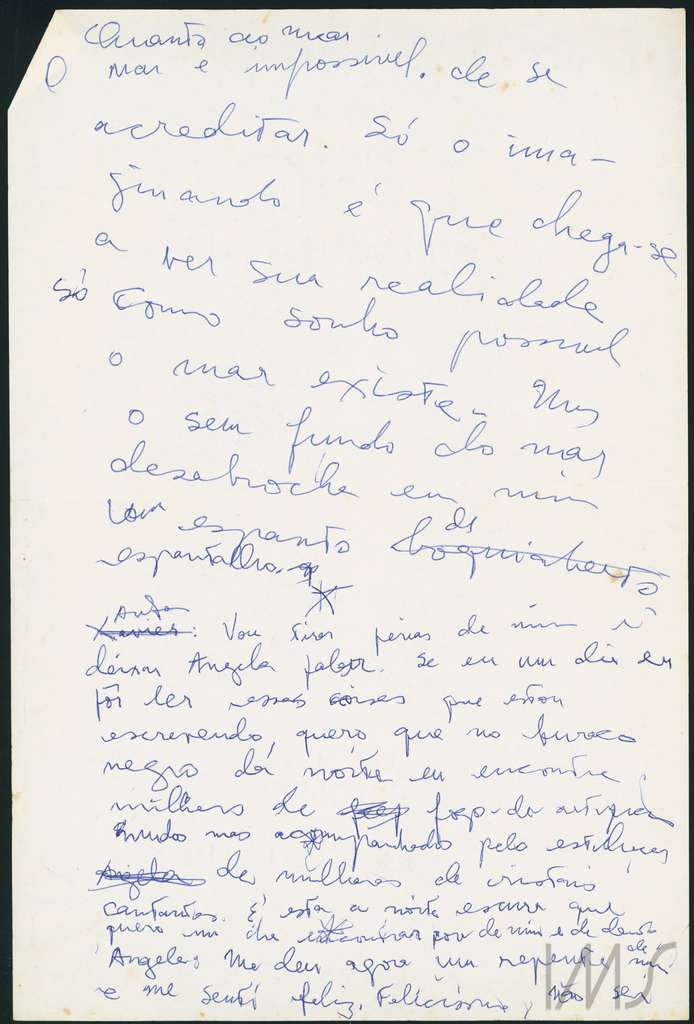 Quanto ao mar
O mar é impossível de se
acreditar. Só o ima-
ginando é que chega-se
a ver sua realidade
Só como sonho possível
o mar existe. Mas
o sem fundo do mar
desabrocha em mim
com espanto de boquiaberto
espantalho.
Autor Xavier: Vou tirar férias de mim e
deixar Angela falar. Se eu um dia eu
for ler essas coisas que estou
escrevendo, quero que no buraco
negro da noite eu encontre
milhares de fogo-de-artifício
mudos mas acompanhados pelo estilhaçar
Angela de milhares de cristais
cantantes. É esta a noite escura que
quero um dia encontrar fora de mim e dentro de mim
Angela: Me deu agora um repente
e me senti feliz. Felicíssima, não sei
IMS